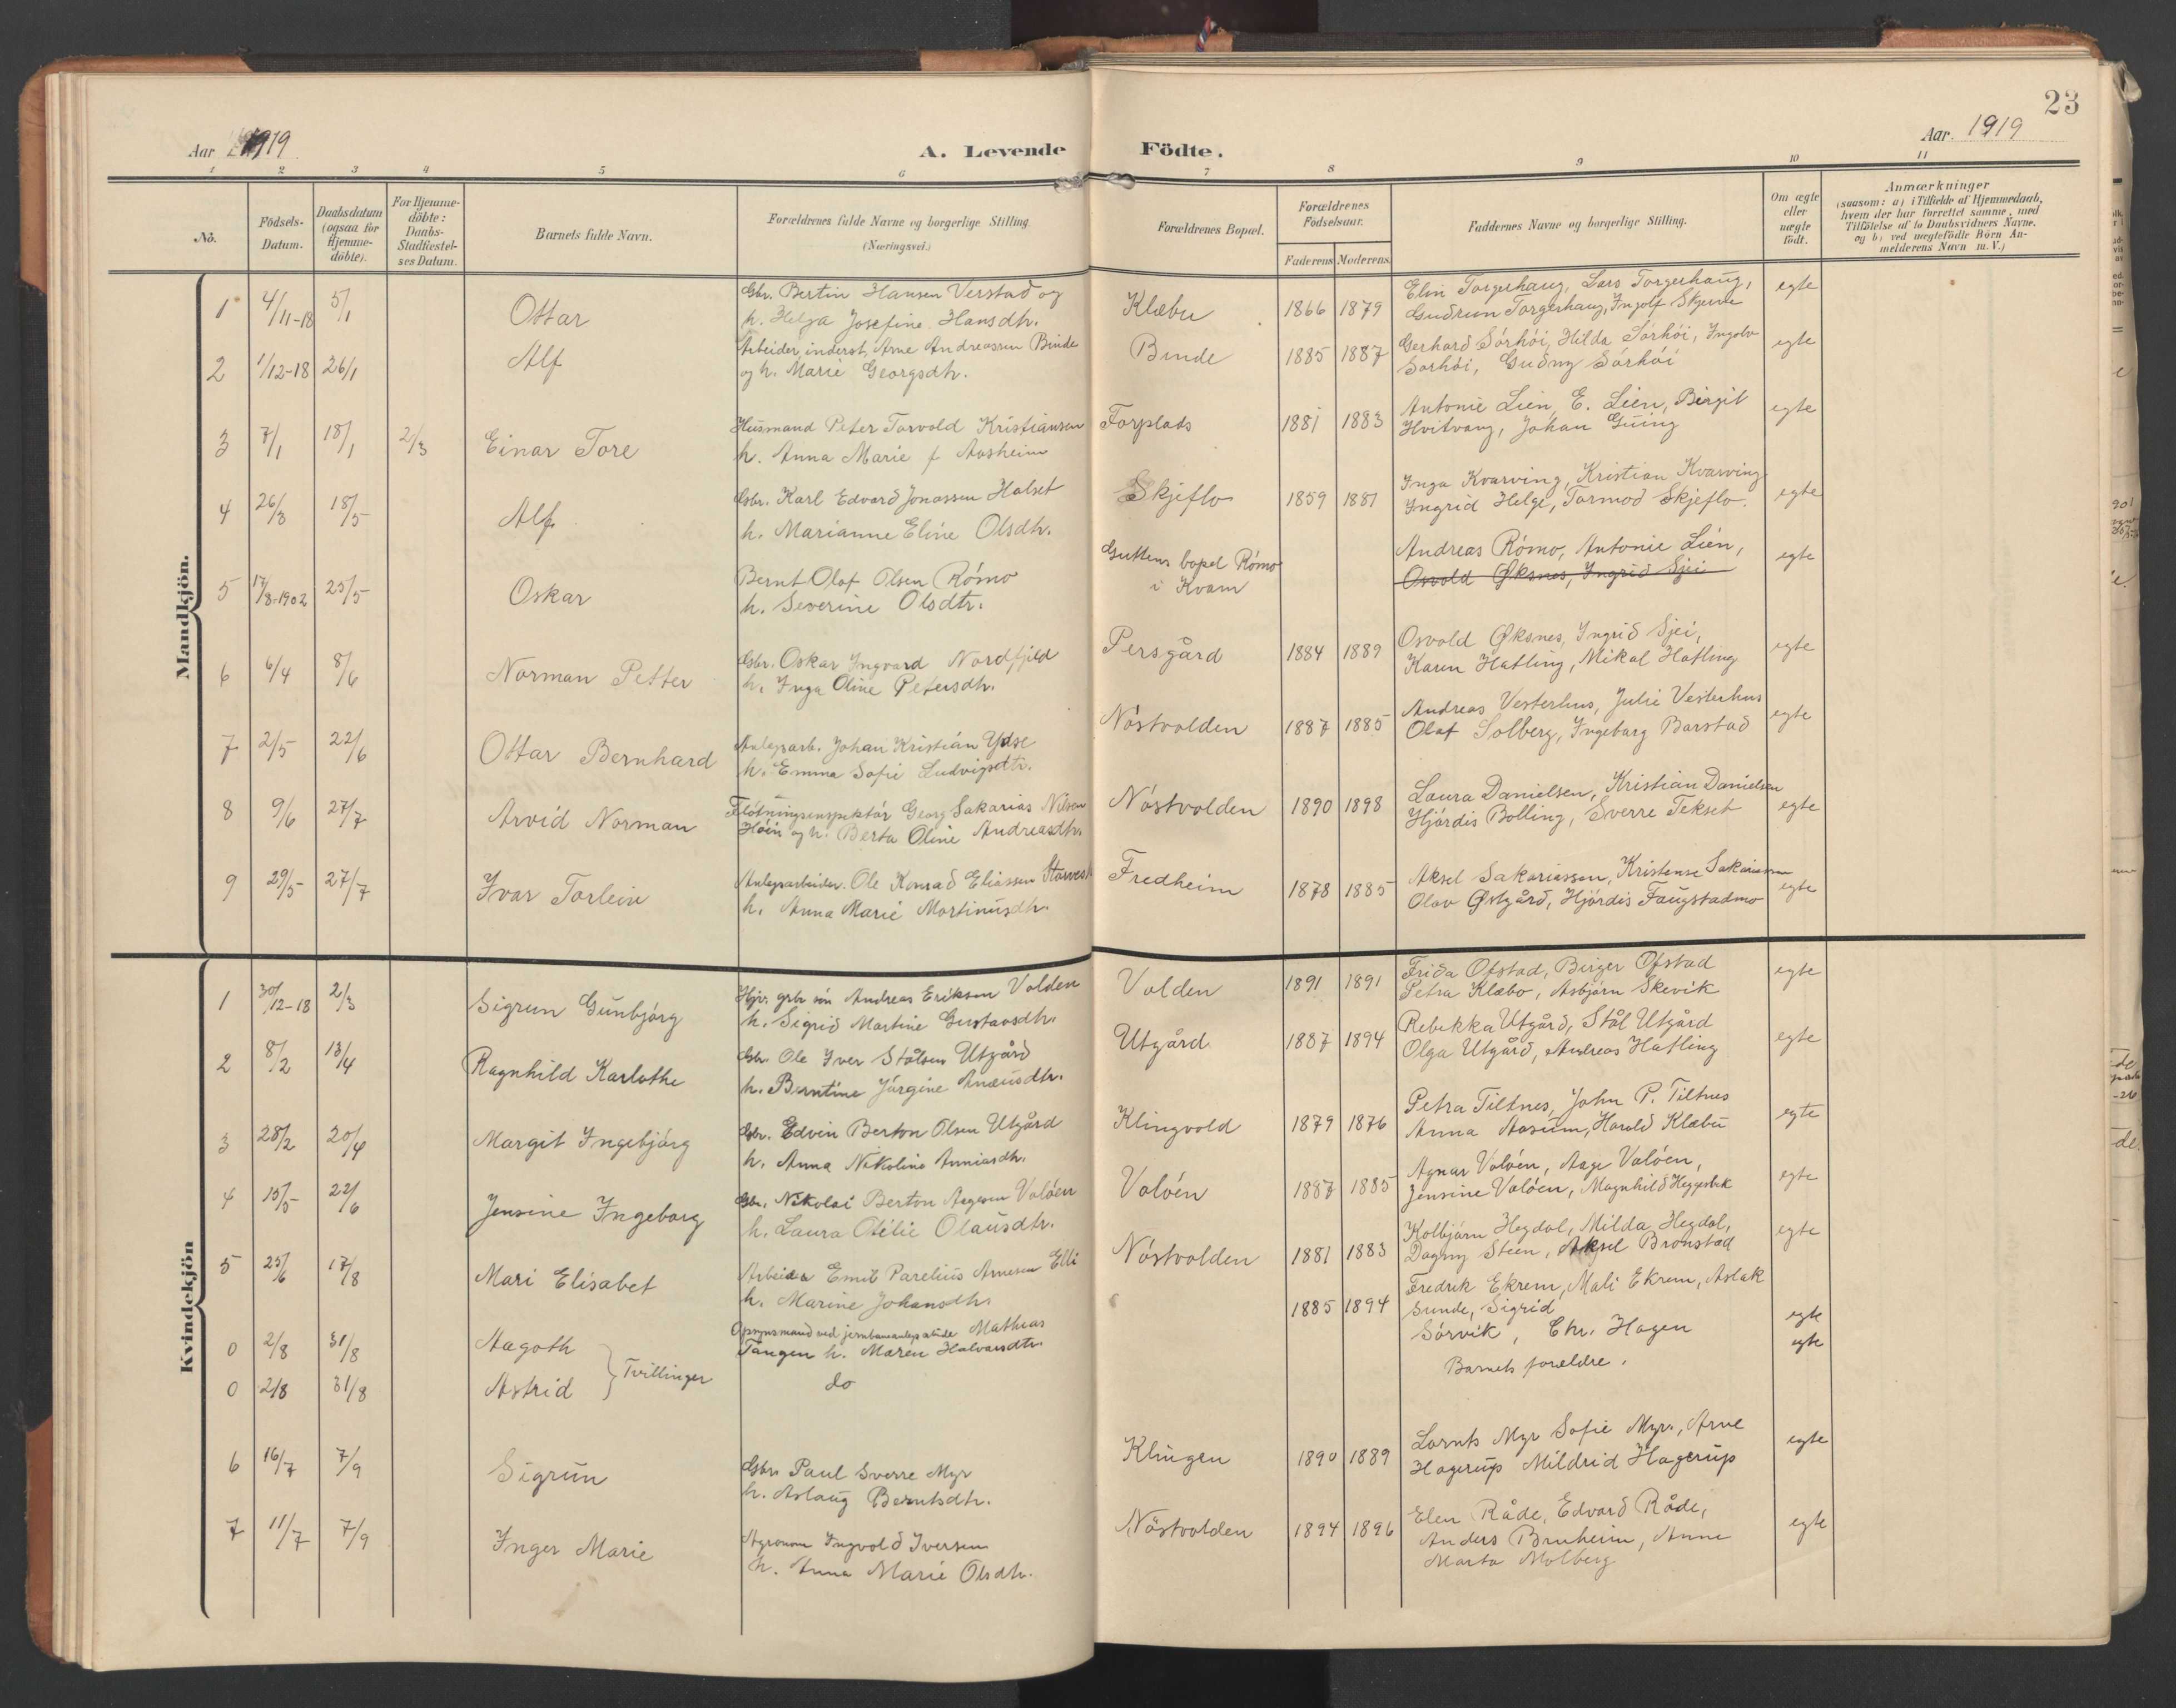 23
Aar 1919
A. Levende Fødte.
Aar. 1919
1 2 3 4 5 6 7 8 9 10 11
No.
Fødsels-
Datum.
Daabsdatum
(ogsaa for
Hjemme-
døbte).
For Hjemme-
døbte:
Daabs-
Stadfæstel-
ses Datum.
Barnets fulde Navn.
Forældrenes fulde Navne og borgerlige Stilling
(Næringsvei.)
Forældrenes Bopæl.
Forældrenes
Fødselsaar.
Faderens Moderens.
Faddernes Navne og borgerlige Stilling.
Om ægte
eller
uægte
født.
Anmærkninger
(saasom: a) i Tilfælde af Hjemmedaab,
hvem der har forrettet samme, med
Tilføielse af to Daabsvidners Navne,
og b) ved uægtefødte Børn An-
melderens Navn m.V.)
Mandkjön.
1 4/11-18 5/1 Ottar
Gbr. Bertin Hansen Verstad og
h. Helga Josefine Hansdtr.
Klæbu 1866 1879
Elin Torgerhaug, Lars Torgerhaug,
Gudrun Torgerhaug, Ingolf Skjerve
egte
2 1/12-18 26/1 Alf
Arbeider, inderst, Arne Andreassen Binde
og h. Marie Georgsdtr.
Binde 1885 1887
Gerhard Sórhói, Hilda Sórhói, Ingolv
Sórhói, Gudny Sórhói
egte
3 7/1 18/1 2/3 Einar Tore
Husmand Peter Torvold Kristiansen
h. Anna Marie f Aasheim
Forplads 1881 1883
Antonie Lien, E. Lien, Birgit
Hvitvang, Johan Guing
egte
4 26/3 18/5 Alf
Gbr. Karl Edvard Jonassen Halset
h. Marianne Eline Olsdtr.
Skjeflo 1859 1881
Inga Kvarving, Kristian Kvarving
Ingrid Helge, Tormod Skjeflo.
egte
5 17/8-1902 25/5 Oskar
Bernt Olaf Olsen Rómo
h. Severine Olsdtr.
Guttens bopel Rómo
i Kvam
Andreas Rómo, Antonie Lien,
Osvald Øksnes, Ingrid Sjei
egte
6 6/4 8/6 Norman Petter
Gbr. Oskar Ingvard Nordfjeld
h. Inga Oline Petersdtr.
Persgård 1884 1889
Osvald Øksnes, Ingrid Sjei,
Karen Hafling, Mikal Hafling
egte
7 2/5 22/6 Ottar Bernhard
Anlegsarb. Johan Kristian Ydse
h. Emma Sofie Ludvigsdtr.
Nóstvolden 1887 1885
Andreas Vesterhus, Julie Vesterhus
Olaf Solberg, Ingeborg Barstad
egte
8 9/6 27/7 Arvid Norman
Flótningsinspektór Georg Sakarias Nilsen
Hóin og h. Berta Oline Andreasdtr.
Nóstvolden 1890 1898
Laura Danielsen, Kristian Danielsen
Hjórdis Bolling, Sverre Tekset
egte
9 29/5 27/7 Ivar Torlein
Anlegsarbeider. Ole Konrad Eliassen
h. Anna Marie Martinusdtr.
Fredheim 1878 1885
Aksel Sakariassen, Kristense Sakariassen
Olav Østgård, Hjórdis Faugstadmo
egte
Kvindekjön
1 30/12-18 2/3 Sigrun Gunbjórg
Hjv. gbr són Andreas Eriksen Volden
h. Sigrid Martine Gustavsdtr.
Volden 1891 1891
Frida Ofstad, Birger Ofstad
Petra Klæbo, Asbjórn Skevik
egte
2 8/2 13/4 Ragnhild Karlothe
Gbr. Ole Iver Stålsen Utgård
h. Berntine Jórgine Aneusdtr.
Utgård 1887 1894
Rebekka Utgård, Stål Utgård
Olga Utgård, Andreas Hafling
egte
3 28/2 20/4 Margit Ingebjórg
Gbr. Edvin Berton Olsen Utgård
h. Anna Nikoline Anniasdtr.
Klingvold 1879 1876
Petra Tiltnes, John P. Tiltnes
Anna Aasum, Harald Klæbu
egte
4 15/5 22/6 Jensine Ingeborg
Gbr. Nikolai Berton Aagesen Valóen
h. Laura Otilie Olausdtr.
Valóen 1887 1885
Agnar Valóen, Aage Valóen,
Jensine Valóen, Magnhild Heggesbek
egte
5 25/6 17/8 Mari Elisabet
Arbeider Emil Parelius Arnesen Elli
h. Marine Johansdtr.
Nóstvolden 1881 1883
Kolbjórn Hegdal, Milda Hegdal,
Dagny Steen, Aksel Brønstad
egte
0 2/8 31/8 Aagoth
Opsynsmand ved jernbaneanlegs Mathias
Tangen h. Maren Halvorsdtr.
1885 1894
Fredrik Ekrem, Mali Ekrem, Aslak
Sunde, Sigrid
Sórvik, Chr. Hagen
egte
0 2/8 31/8 Astrid } Tvillinger
do
Barnets forældre.
egte
6 16/7 7/9 Sigrun
Gbr. Paul Sverre Myr
h. Aslaug Berntsdtr.
Klingen 1890 1889
Lornts Myr Sofie Myr., Arne
Hagerup Mildrid Hagerup
egte
7 11/7 7/9 Inger Marie
Agronom Ingvold Iversen
h. Anna Marie Olsdtr.
Nóstvolden 1894 1896
Elen Råde, Edvard Råde,
Anders Bruheim, Anne
Marta Molberg
egte